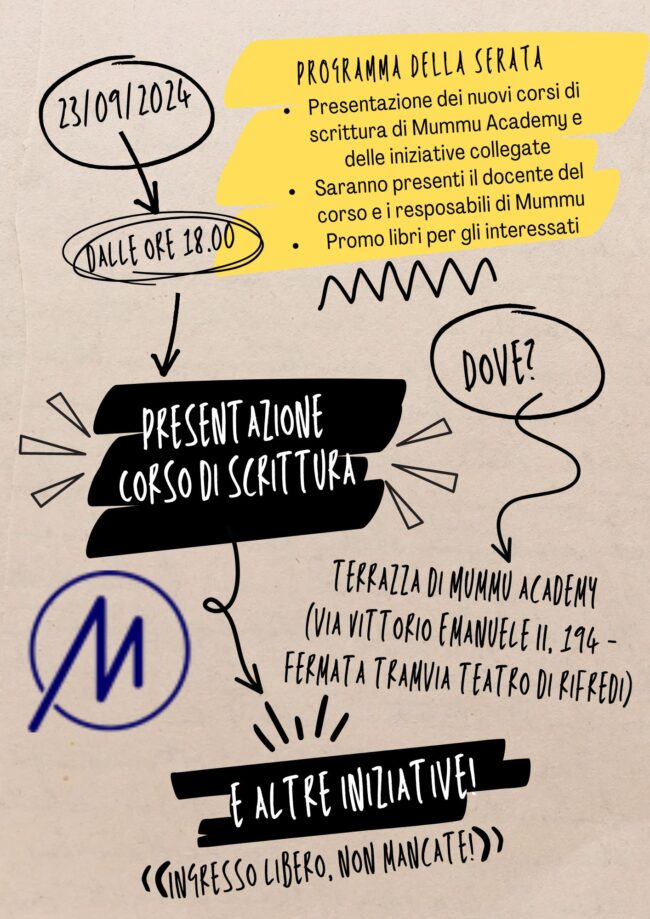 23/09/2024
PROGRAMMA DELLA SERATA
• Presentazione dei nuovi corsi di
scrittura di Mummu Academy e
delle iniziative collegate
• Saranno presenti il docente del
corso e i resposabili di Mummu
• Promo libri per gli interessati
DALLE ORE 18.00
DOVE?
PRESENTAZIONE
CORSO DI SCRITTURA
TERRAZZA DI MUMMU ACADEMY
(VIA VITTORIO EMANUELE II, 194 -
FERMATA TRAMVIA TEATRO DI RIFREDI)
M
E ALTRE INIZIATIVE!
((INGRESSO LIBERO, NON MANCATE!))